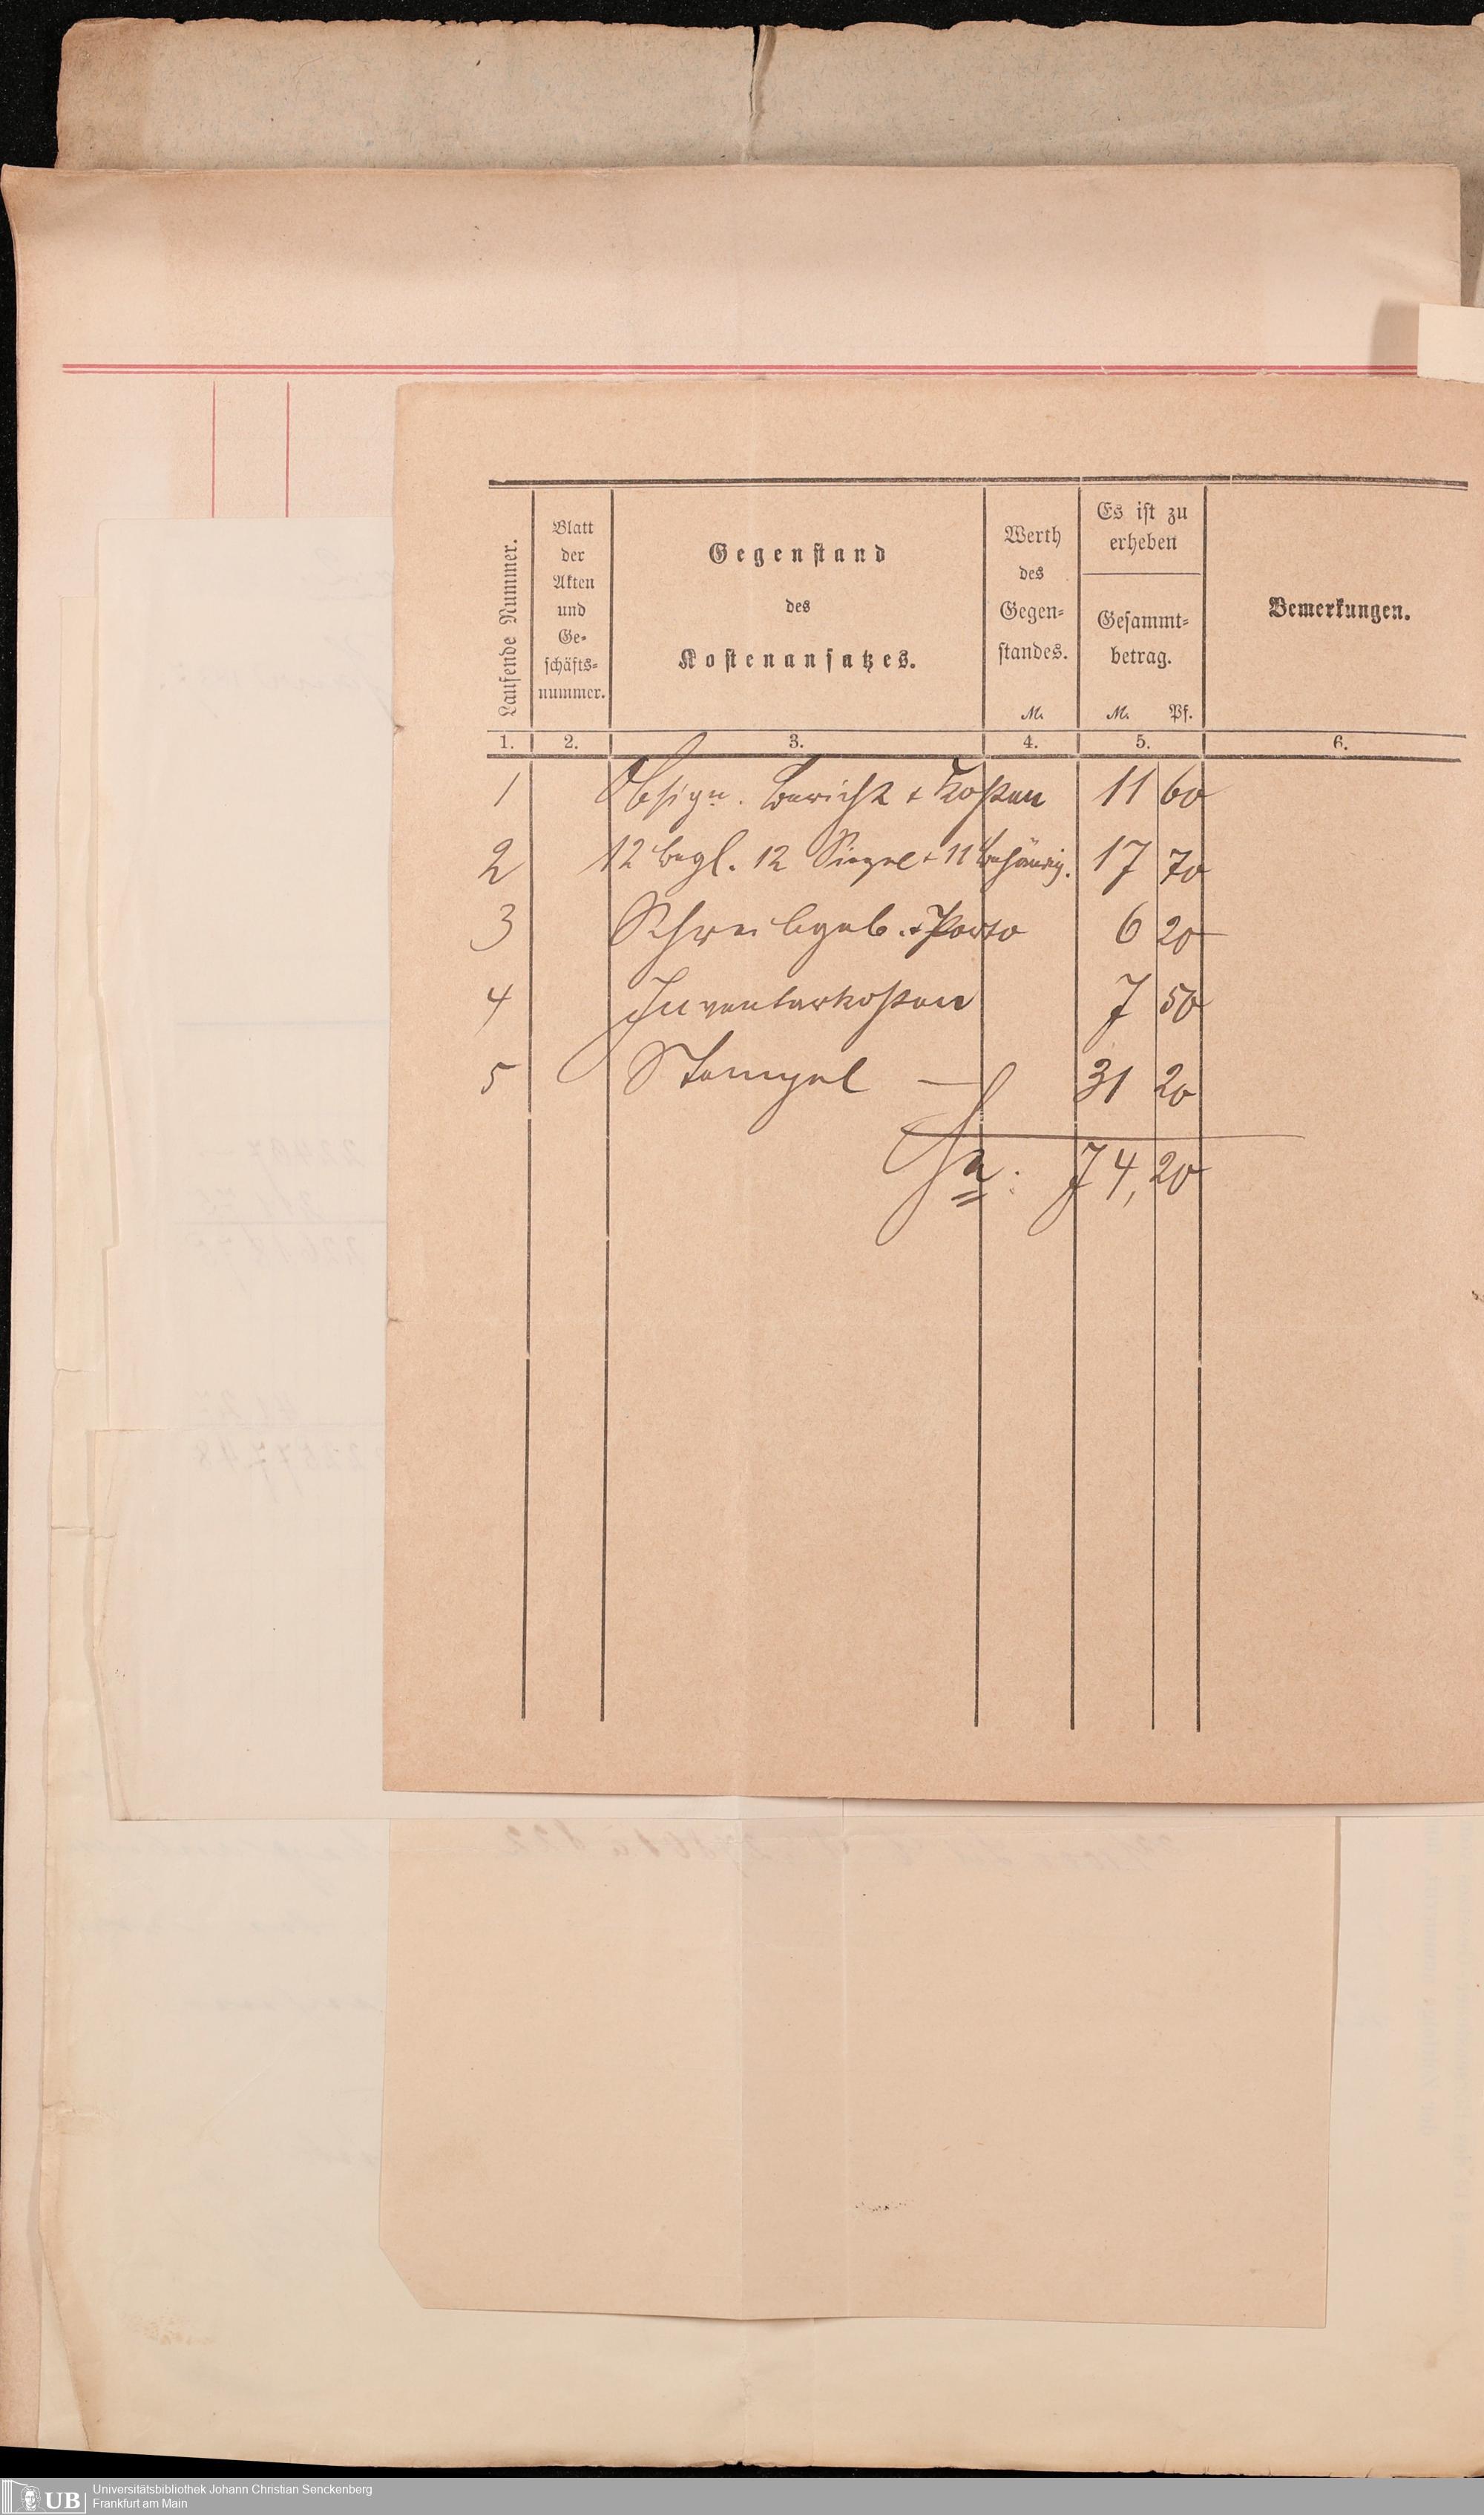 Laufende Nummer.
Blatt
der
Akten
und
Ge-
schäfts-
nummer.
Gegenstand
des
Kostenansatzes.
Werth
des
Gegen-
standes.
M.
Es ist zu
erheben
Gesammt-
betrag.
M. Pf.
Bemerkungen.
1. 2. 3. 4. 5. 6.
1 Obsign. Bericht + Kosten 11 60
2 12 begl. 12 Siegel + 11 17 70
3 Schreibgeb. + Porto 6 20
4 Inventarkosten 7 50
5 Stempel — 31 20
Sa. 74,20
UB
Universitätsbibliothek Johann Christian Senckenberg
Frankfurt am Main